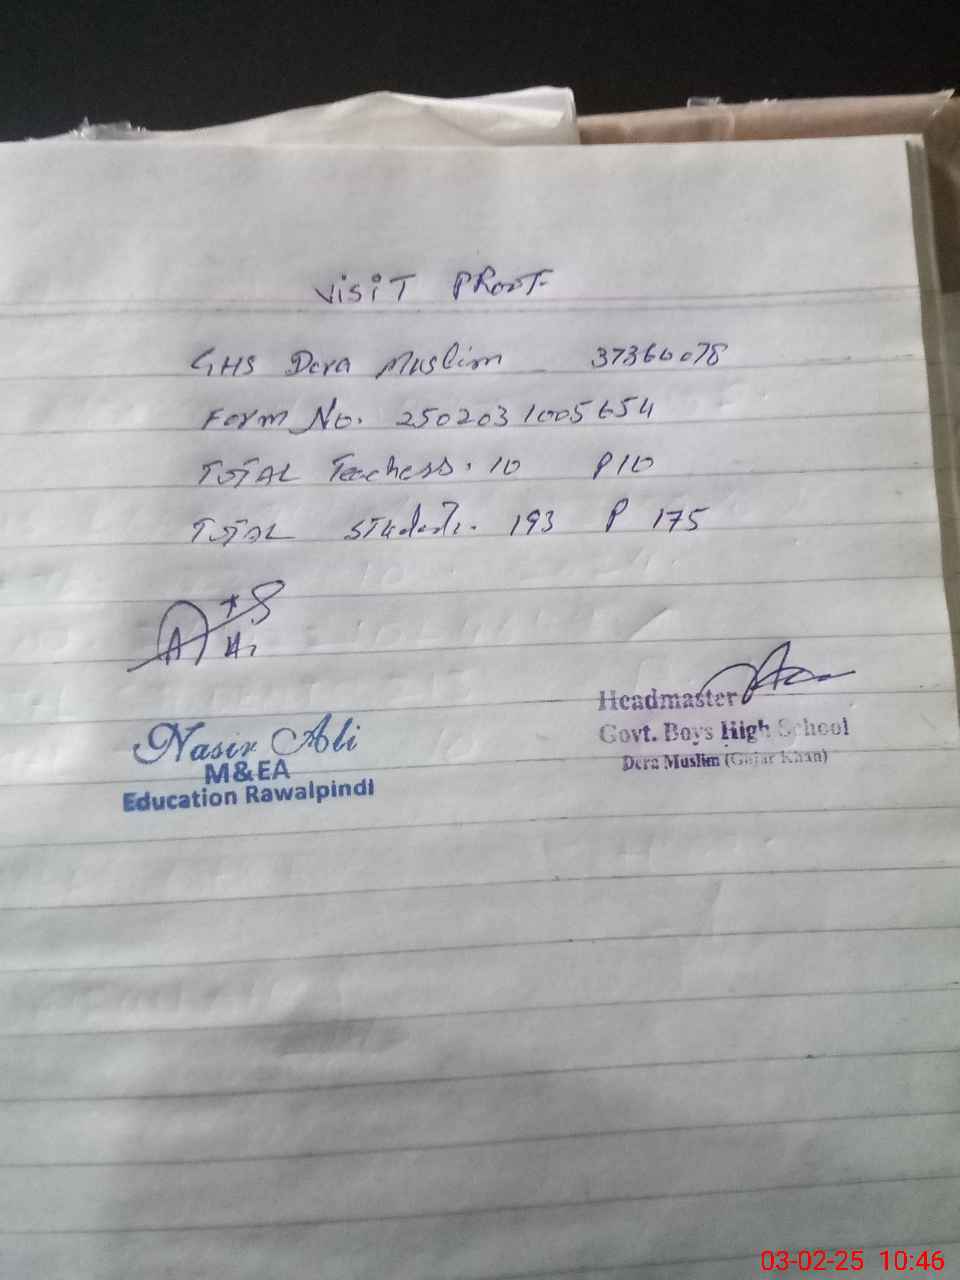 VisiT PRooT
GHS Dera Muslim 37360078
Form No. 2502031005654
TOTAL Teachers. 10 P10
TOTAL Students. 193 P 175
Nasir Ali
M&EA
Education Rawalpindi
Headmaster
Govt. Boys High School
Dera Muslim (Gujar Khan)
03-02-25 10:46